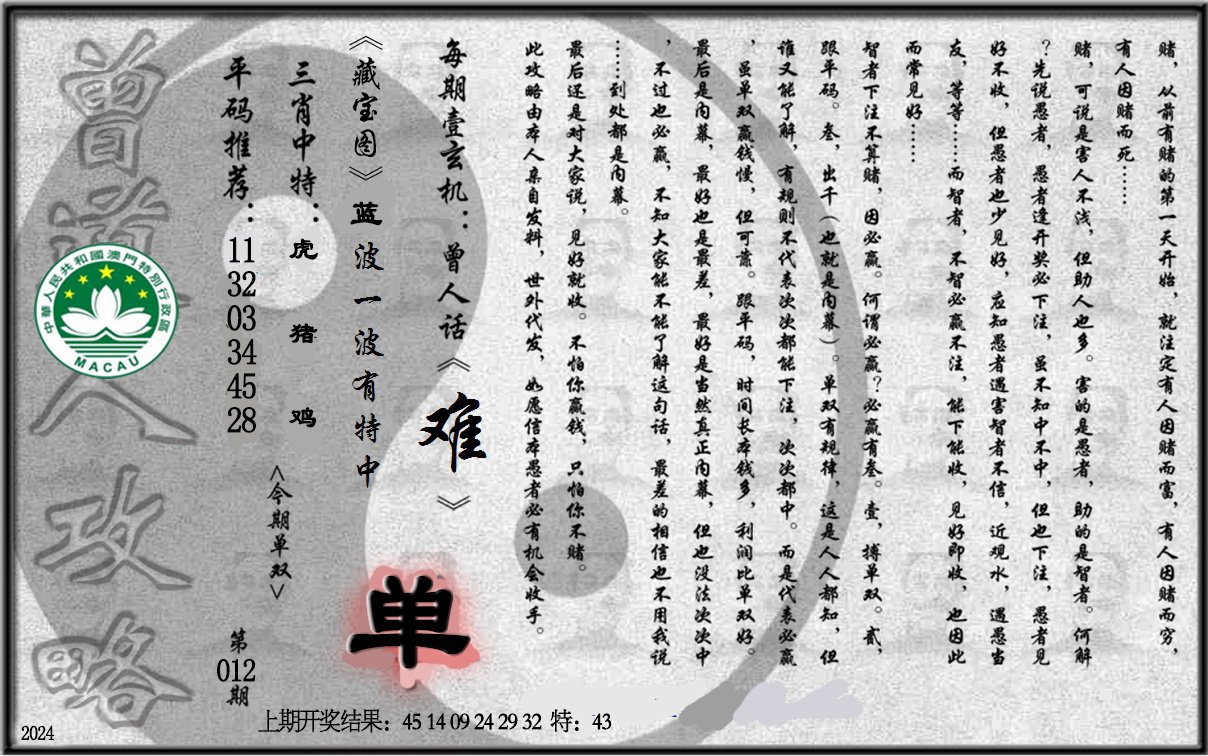 赌，从前有赌的第一天开始，就注定有人因赌而富，有人因赌而穷，
有人因赌而死……
赌，可说是害人不浅，但助人也多。害的是愚者，助的是智者。何解
？先说愚者，愚者逢开奖必下注，虽不知中不中，但也下注，愚者见
好不收，但愚者也少见好，应知愚者遇害智者不信，近观水，遇愚当
友，等等……而智者，不智必赢不注，能下能收，见好即收，也因此
而常见好……
智者下注不算赌，因必赢。何谓必赢？必赢有叁。壹，搏单双。贰，
跟平码。叁，出千（也就是内幕）。单双有规律，这是人人都知，但
谁又能了解，有规则不代表次次都能下注，次次都中。而是代表必赢
，虽单双赢钱慢，但可靠。跟平码，时间长本钱多，利润比单双好。
最后是内幕，最好也是最差，最好是当然真正内幕，但也没法次次中
，不过也必赢，不知大家能不能了解这句话，最差的相信也不用我说
……到处都是内幕。
最后还是对大家说，见好就收。不怕你赢钱，只怕你不赌。
此攻略由本人亲自发料，世外代发，如愿信本愚者必有机会收手。
每期壹玄机：曾人话《难》
《藏宝图》蓝波一波有特中
单
三肖中特：虎 猪 鸡
<今期单双>
平码推荐：11 32 03 34 45 28
第012期
曾道人攻略
中華人民共和國澳門特別行政區
MACAU
上期开奖结果：45 14 09 24 29 32 特：43
2024